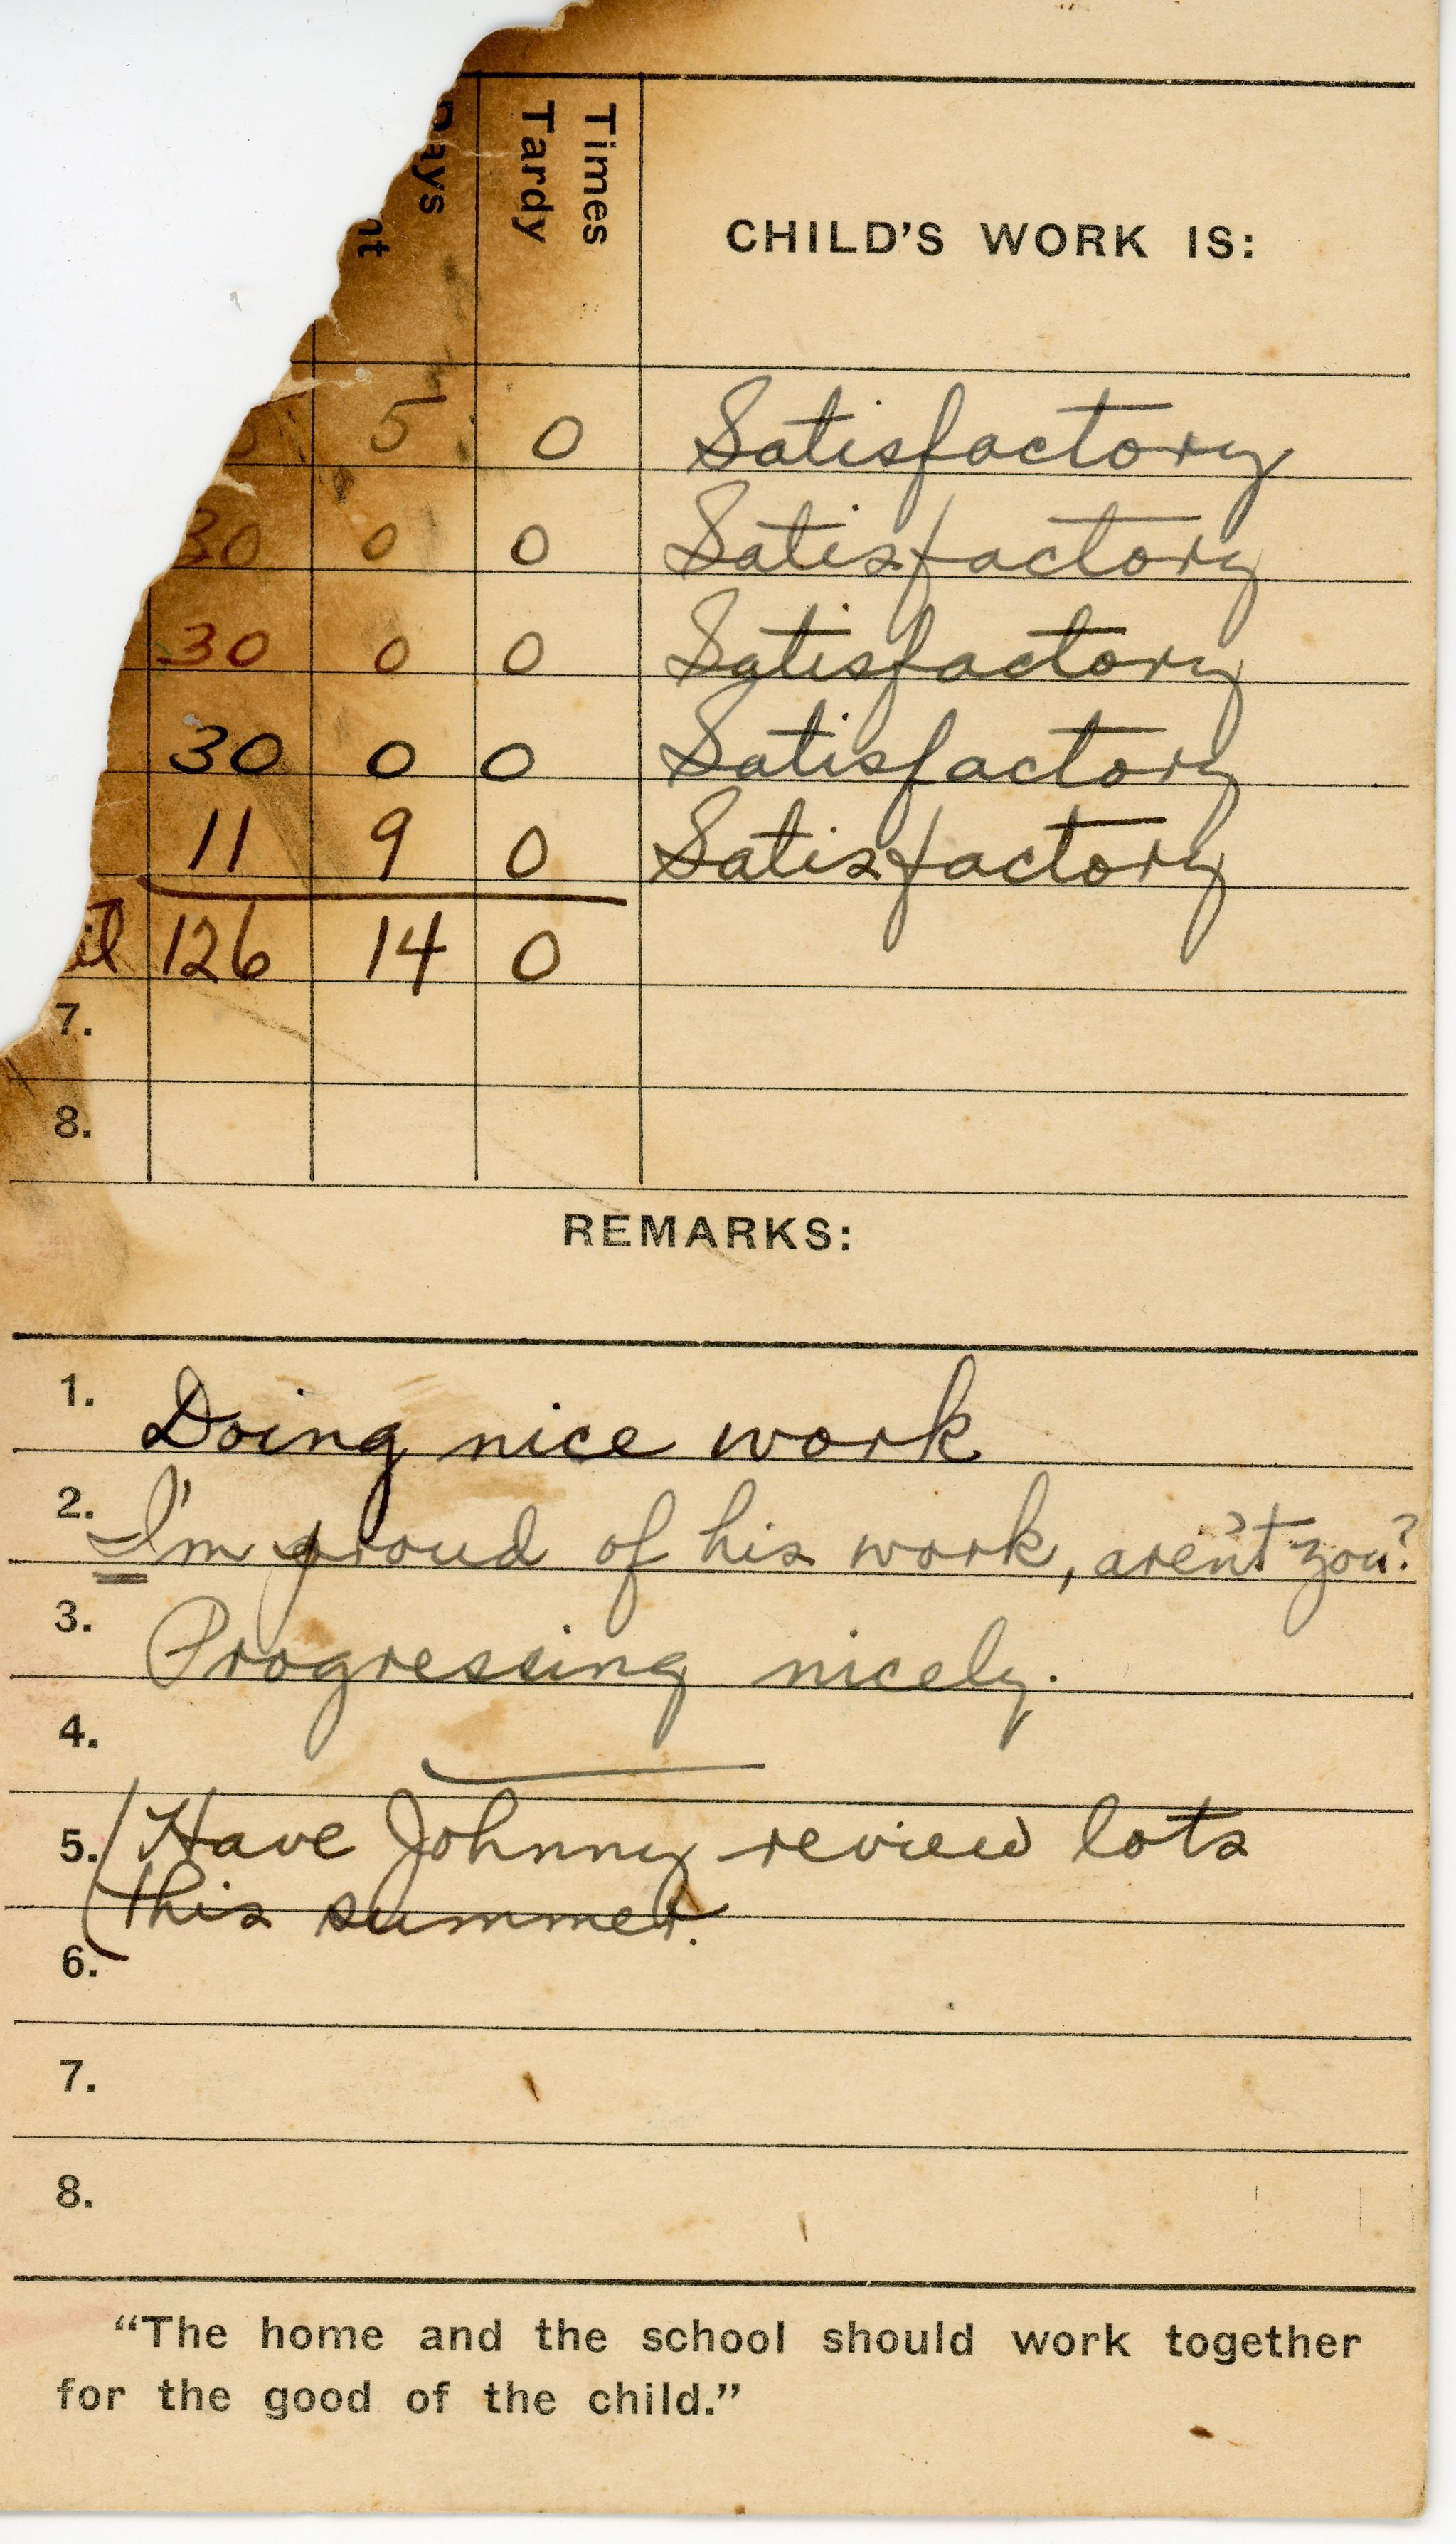 Times
Tardy
CHILD'S WORK IS:
5 0 Satisfactory
30 0 0 Satisfactory
30 0 0 Satisfactory
30 0 0 Satisfactory
11 9 0 Satisfactory
126 14 0
7.
8.
REMARKS:
1. Doing nice work
2. I'm proud of his work, aren't you?
3. Progressing nicely.
4.
5. Have Johnny review lots
this summer.
6.
7.
8.
“The home and the school should work together
for the good of the child.”